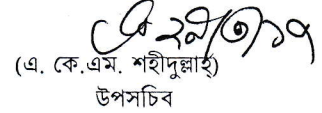 (এ. কে.এম. শহীদুল্লাহ্)
উপসচিব